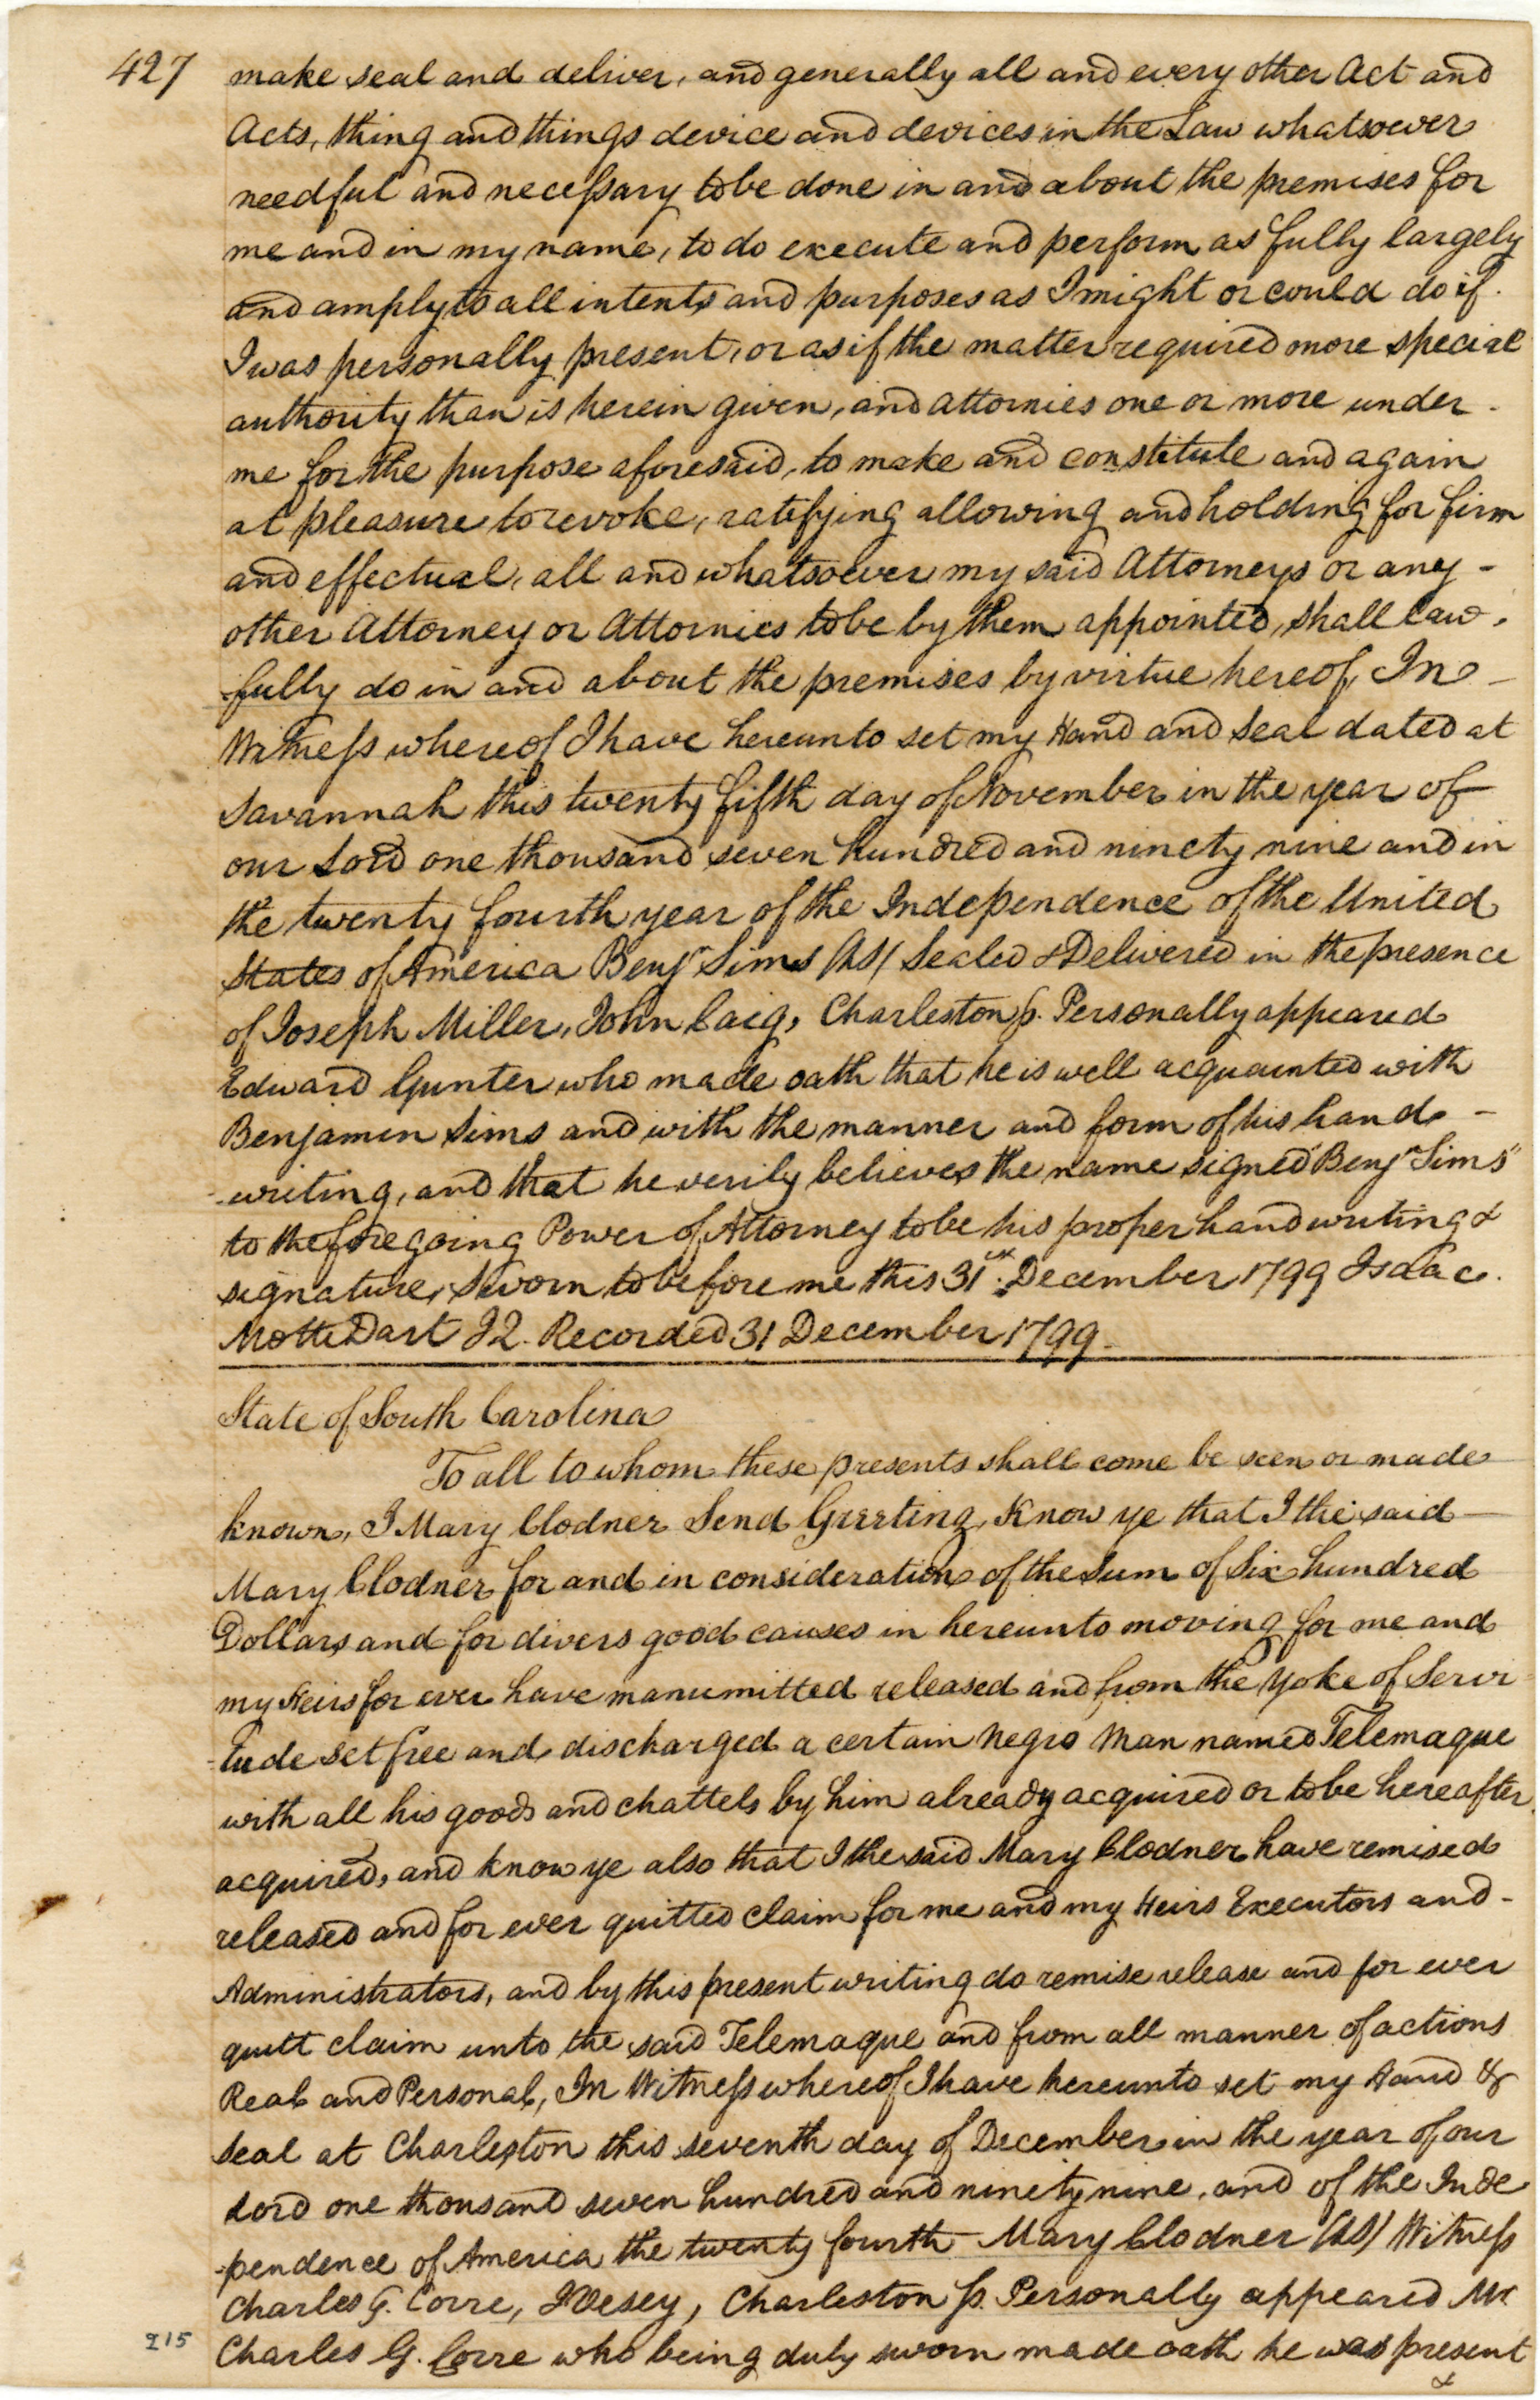 427 make seal and deliver, and generally all and every other Act and
Acts, thing and things device and devices in the Law whatsoever
needful and necessary to be done in and about the premises for
me and in my name, to do execute and perform as fully largely
and amply to all intents and purposes as I might or could do if
I was personally present, or as if the matter required more special
authority than is herein given, and attornies one or more under
me for the purpose aforesaid, to make and constitute and again
at pleasure to revoke, ratifying allowing and holding for firm
and effectual, all and whatsoever my said Attorneys or any -
other Attorney or Attornies to be by them appointed, shall law-
fully do in and about the premises by virtue hereof, In -
Witness whereof I have hereunto set my Hand and Seal dated at
Savannah this twenty fifth day of November in the year of
our Lord one thousand seven hundred and ninety nine and in
the twenty fourth year of the Independence of the United
States of America Benjn Sims (LS) Sealed & Delivered in the presence
of Joseph Miller, John Caig, Charleston ss. Personally appeared
Edward Gunter who made oath that he is well acquainted with
Benjamin Sims and with the manner and form of his hand -
-writing, and that he verily believes the name signed "Benjn Sims"
to the foregoing Power of Attorney to be his proper handwriting &
signature, Sworn to before me this 31st. December 1799 Isaac
Motte Dart J Q. Recorded 31 December 1799.
State of South Carolina
To all to whom these presents shall come be seen or made
known, I Mary Clodner Send Greeting, Know ye that I the said -
Mary Clodner for and in consideration of the Sum of Six hundred
Dollars and for divers good causes in hereunto moving for me and
my Heirs for ever have manumitted released and from the Yoke of Servi
-tude set free and discharged a certain negro man named Telemaque
with all his goods and chattels by him already acquired or to be hereafter
acquired, and know ye also that I the said Mary Clodner have remised
released and for ever quitted claim for me and my Heirs Executors and -
Administrators, and by this present writing do remise release and for ever
quitt claim unto the said Telemaque and from all manner of actions
Real and Personal, In Witness whereof I have hereunto set my Hand &
Seal at Charleston this seventh day of December in the year of our
Lord one thousand seven hundred and ninety nine, and of the Inde
-pendence of America the twenty fourth Mary Clodner (LS) Witness
Charles G. Corre, J Vesey, Charleston ss. Personally appeared Mr.
Charles G. Corre who being duly sworn made oath he was present
&
215